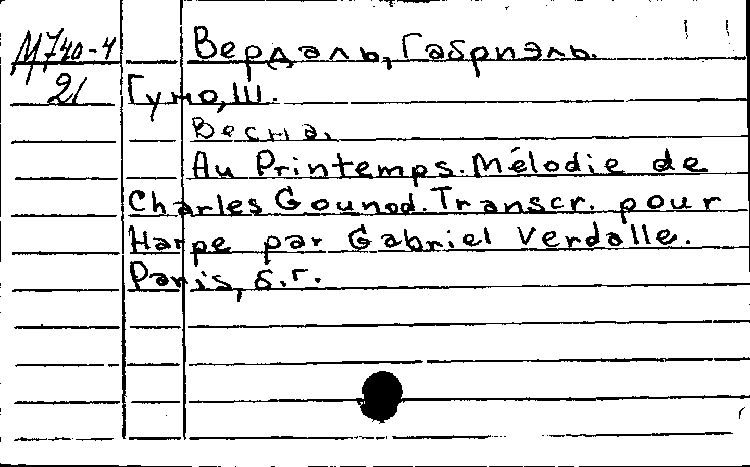 М740-4
21
Вердаль, Габриэль.
Гуно, Ш.
Весна.
Au Printemps. Mélodie de
Charles Gounod. Transcr. pour
Harpe par Gabriel Verdalle.
Paris, б.г.